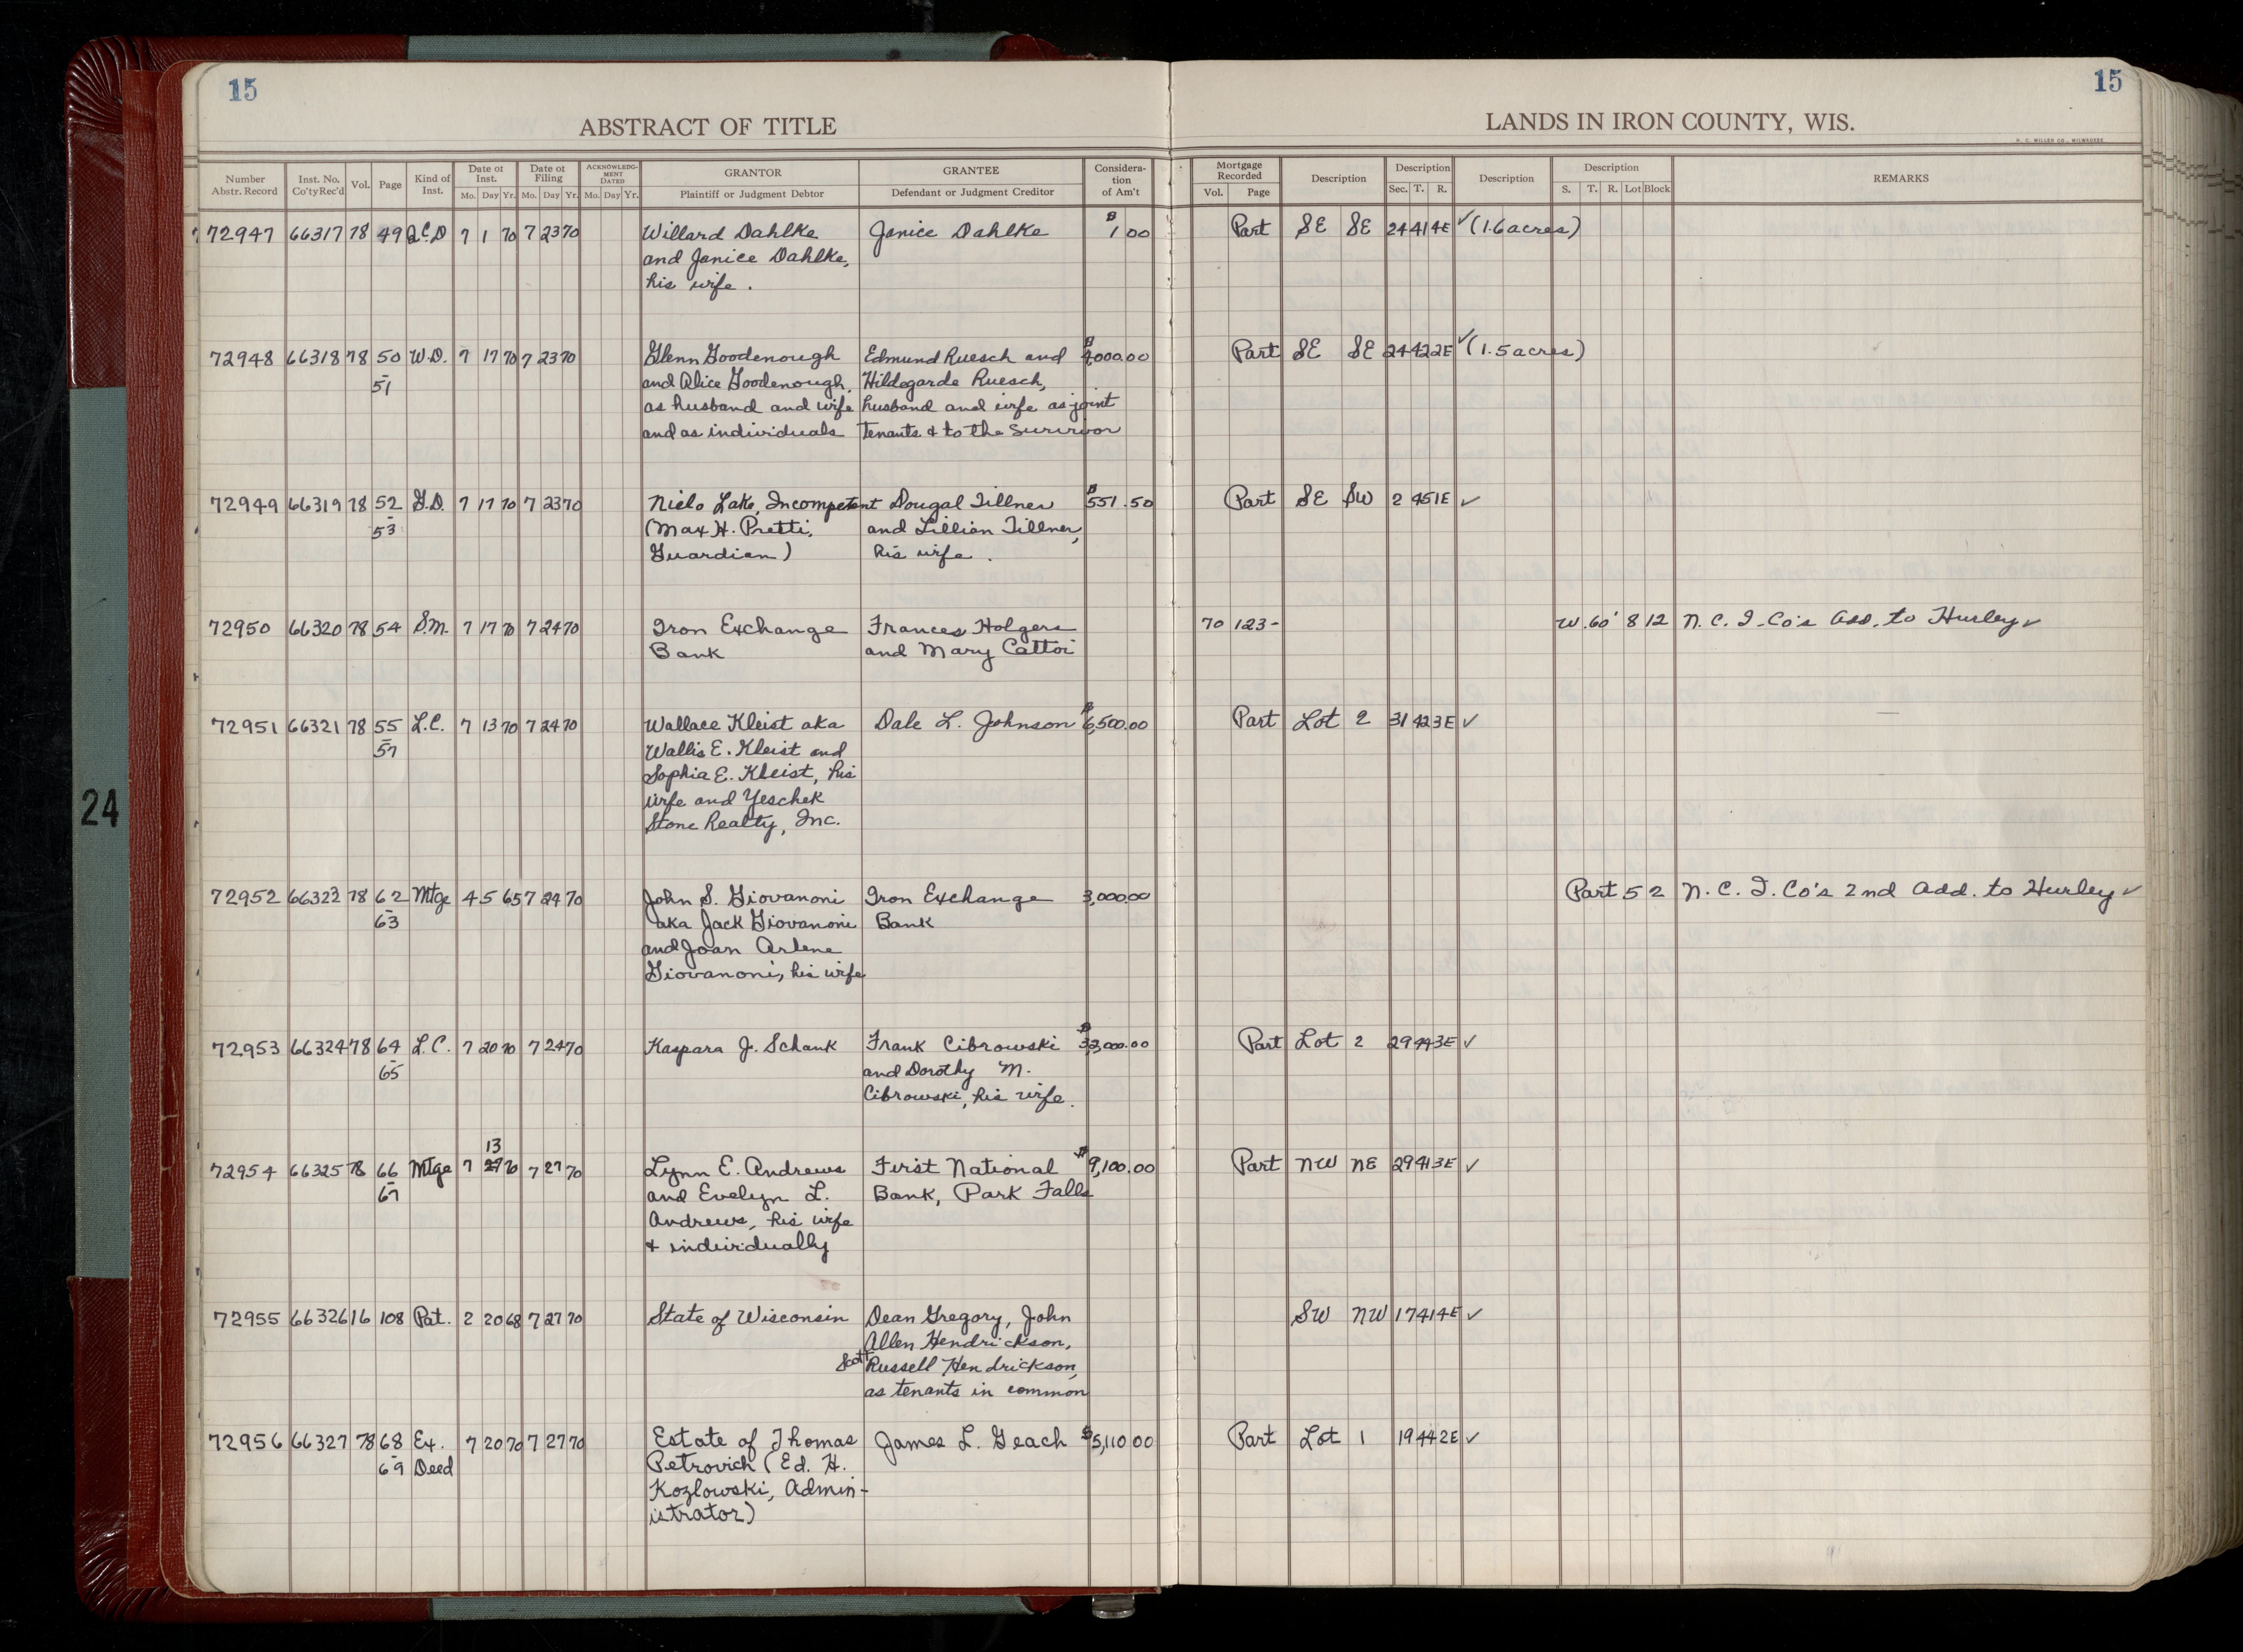 15
15
ABSTRACT OF TITLE
LANDS IN IRON COUNTY, WIS.
H. C. MILLER CO., MILWAUKEE
Number Abstr. Record | Inst. No. Co'ty Rec'd | Vol. | Page | Kind of Inst. | Date of Inst. Mo. Day Yr. | Date of Filing Mo. Day Yr. | ACKNOWLEDG-MENT DATED Mo. Day Yr. | GRANTOR Plaintiff or Judgment Debtor | GRANTEE Defendant or Judgment Creditor | Considera-tion of Am't | Mortgage Recorded Vol. Page | Description | Description Sec. T. R. | Description | Description S. T. R. Lot Block | REMARKS
72947 66317 78 49 Q.C.D 7 1 70 7 23 70 Willard Dahlke Janice Dahlke $1 00 Part SE SE 24 41 4E ✓ (1.6 acres)
and Janice Dahlke,
his wife.
72948 66318 78 50 W.D. 7 17 70 7 23 70 Glenn Goodenough Edmund Ruesch and $ 000.00 Part SE SE 24 42 2E ✓ (1.5 acres)
- 51 and Alice Goodenough, Hildegarde Ruesch,
as husband and wife husband and wife as joint
and as individuals tenants & to the survivor
72949 66319 78 52 G.D. 7 17 70 7 23 70 Nielo Lake, Incompetent Dougal Tillner $551.50 Part SE SW 2 45 1E ✓
- 53 (Max H. Pretti, and Lillian Tillner,
Guardian) his wife.
72950 66320 78 54 S.M. 7 17 70 7 24 70 Iron Exchange Frances Holgers 70 123- W.60' 8 12 N.C.I. Co's Add. to Hurley ✓
Bank and Mary Cattoi
72951 66321 78 55 L.C. 7 13 70 7 24 70 Wallace Kleist aka Dale L. Johnson $6,500.00 Part Lot 2 31 42 3E ✓
- 57 Wallis E. Kleist and
Sophia E. Kleist, his
wife and Yeschek
Stone Realty, Inc.
72952 66323 78 62 Mtge 4 5 65 7 24 70 John S. Giovanoni Iron Exchange 3,000.00 Part 5 2 N.C.I. Co's 2nd Add. to Hurley ✓
- 63 aka Jack Giovanoni Bank
and Joan Arlene
Giovanoni, his wife
72953 66324 78 64 L.C. 7 20 70 7 24 70 Kaspara J. Schank Frank Cibrowski $ ,000.00 Part Lot 2 29 44 3E ✓
- 65 and Dorothy M.
Cibrowski, his wife.
13
72954 66325 78 66 Mtge 7 29 70 7 27 70 Lynn E. Andrews First National $9,100.00 Part NW NE 29 41 3E ✓
- 67 and Evelyn L. Bank, Park Falls
Andrews, his wife
& individually
72955 66326 16 108 Pat. 2 20 68 7 27 70 State of Wisconsin Dean Gregory, John SW NW 17 41 4E ✓
Allen Hendrickson,
Scott Russell Hendrickson,
as tenants in common
72956 66327 78 68 Ex. 7 20 70 7 27 70 Estate of Thomas James L. Geach $5,110.00 Part Lot 1 19 44 2E ✓
- 69 Deed Petrovich (Ed. H.
Kozlowski, Admin-
istrator)
24